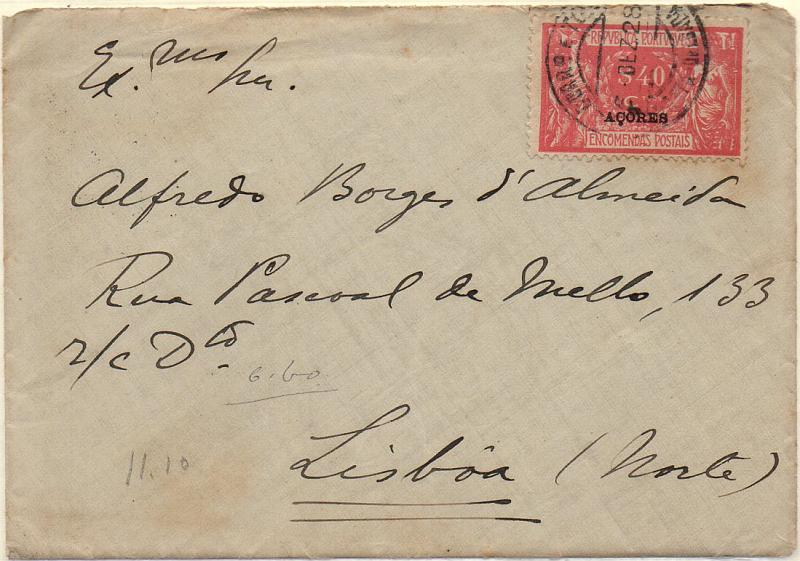 REPUBLICA PORTUGUESA
$40
AÇORES
ENCOMENDAS POSTAIS
Ex.mo Snr.
Alfredo Borges d'Almeida
Rua Pascoal de Mello, 133
r/c Dto
6.60
11.10
Lisbôa (Norte)